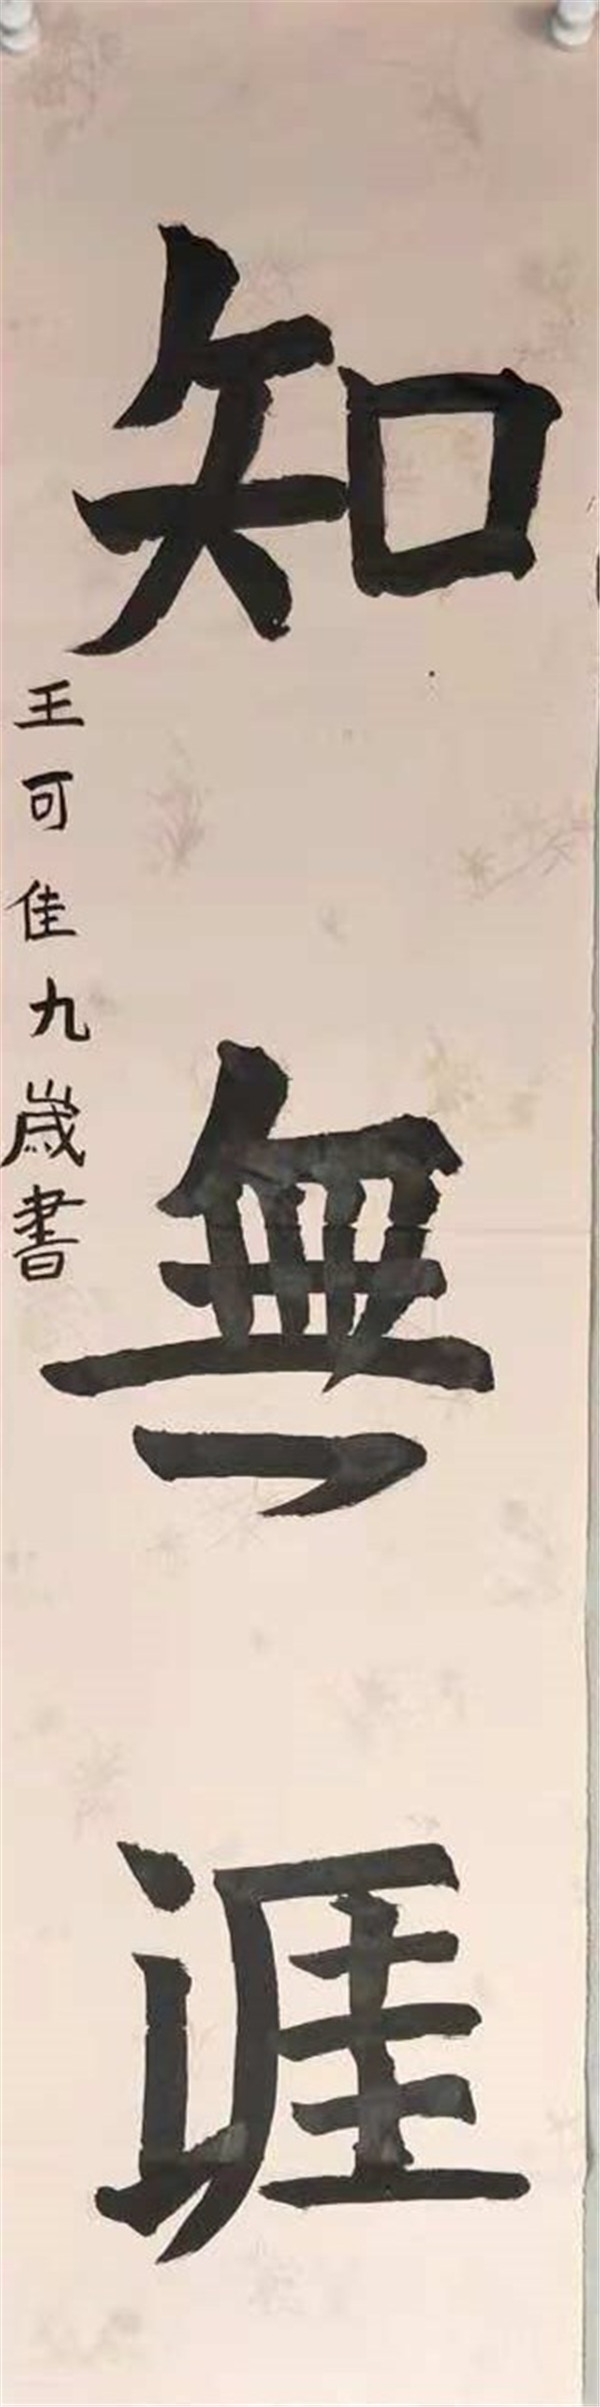 知無涯
王可佳九歲書